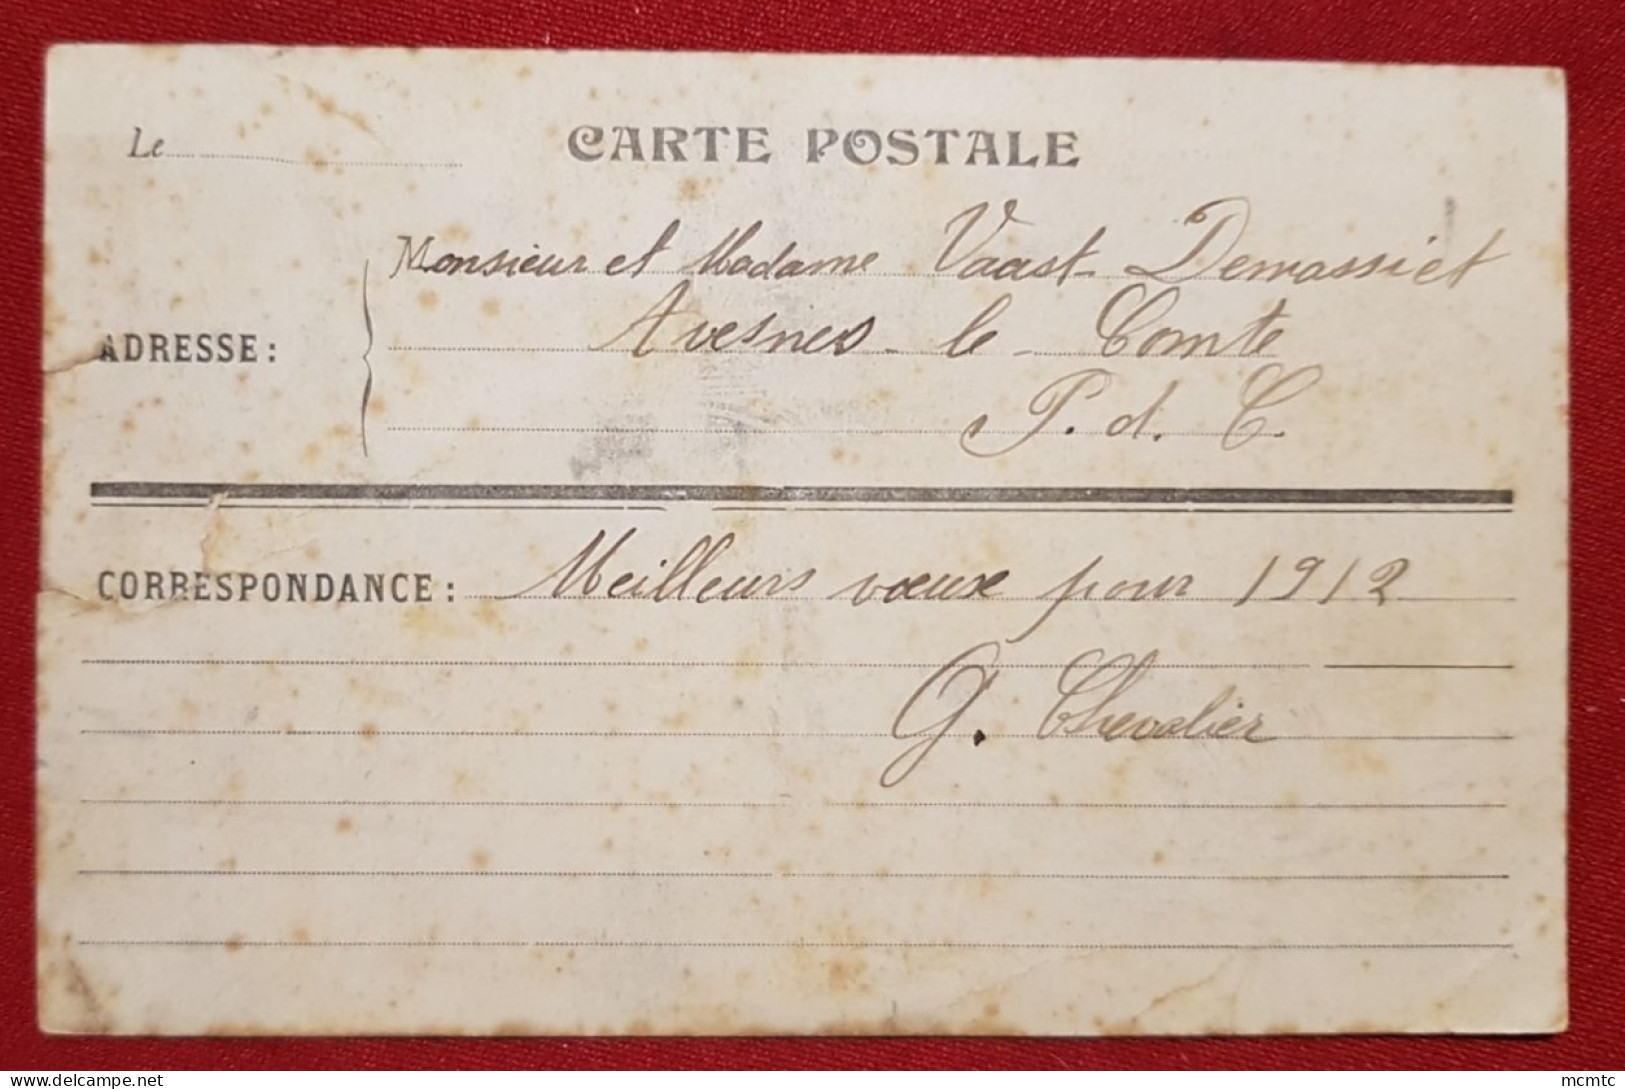 CARTE POSTALE
Le
Monsieur et Madame Vaast-Demassiet
ADRESSE :
Avesnes-le-Comte
P. d. C.
CORRESPONDANCE : Meilleurs vœux pour 1912
G. Chevalier
delcampe.net
mcmtc